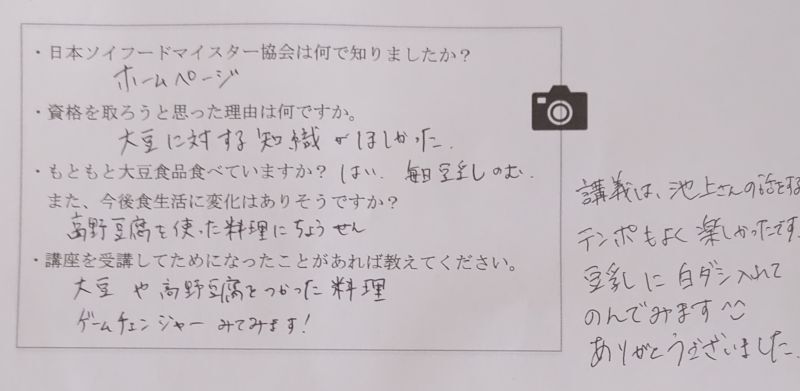 ・日本ソイフードマイスター協会は何で知りましたか？
ホームページ
・資格を取ろうと思った理由は何ですか。
大豆に対する知識がほしかった.
・もともと大豆食品食べていますか？ はい. 毎日豆乳のむ.
また、今後食生活に変化はありそうですか？
高野豆腐を使った料理にちょうせん
・講座を受講してためになったことがあれば教えてください。
大豆や高野豆腐をつかった料理
ゲームチェンジャーみてみます!
講義は、池上さんの話をする
テンポもよく楽しかったです.
豆乳に白ダシ入れて
のんでみます^^
ありがとうございました.